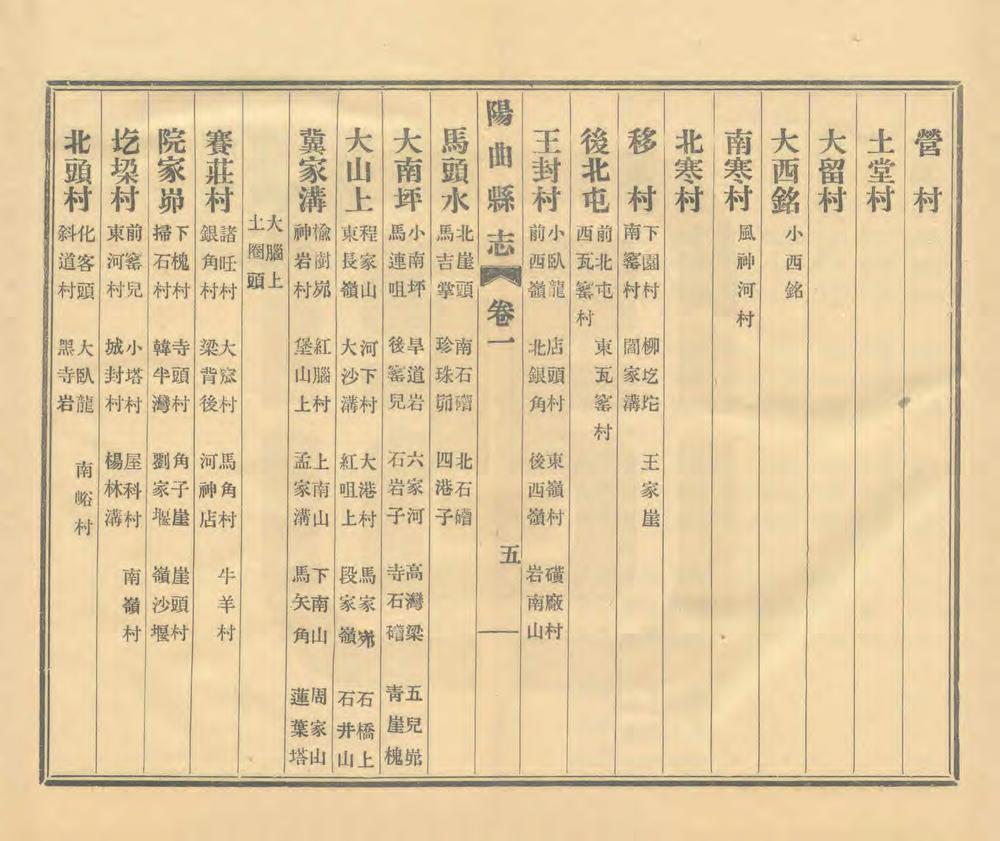 營村
土堂村
大留村
大西銘 小西銘
南寒村 風神河村
北寒村
移村 下園村 南窰村 柳圪坨 閻家溝 王家崖
後北屯 前北屯 西瓦窰村 東瓦窰村
王封村 小臥龍 前西嶺 店頭村 北銀角 東嶺村 後西嶺 磺廠村 岩南山
陽曲縣志 卷一 五
馬頭水 北崖頭 馬吉掌 南石 珍珠峁 北石 四港子
大南坪 小南坪 馬連咀 旱道岩 後窰兒 六家河 石岩子 高灣梁 寺石 五兒峁 青崖槐
大山上 程家山 東長嶺 河下村 大沙溝 大港村 紅咀上 馬家峁 段家嶺 石橋上 石井山
冀家溝 楡樹峁 神岩村 紅腦村 堡山上 上南山 孟家溝 下南山 馬矢角 周家山 蓮葉塔
大腦上 土圈頭
賽莊村 諸旺村 銀角村 大村 梁背後 馬角村 河神店 牛羊村
院家峁 下槐村 掃石村 寺頭村 韓半灣 角子崖 劉家堰 崖頭村 嶺沙堰
圪垜村 前窰兒 東河村 小塔村 城封村 屋科村 楊林溝 南嶺村
北頭村 化客頭 斜道村 大臥龍 黑寺岩 南峪村